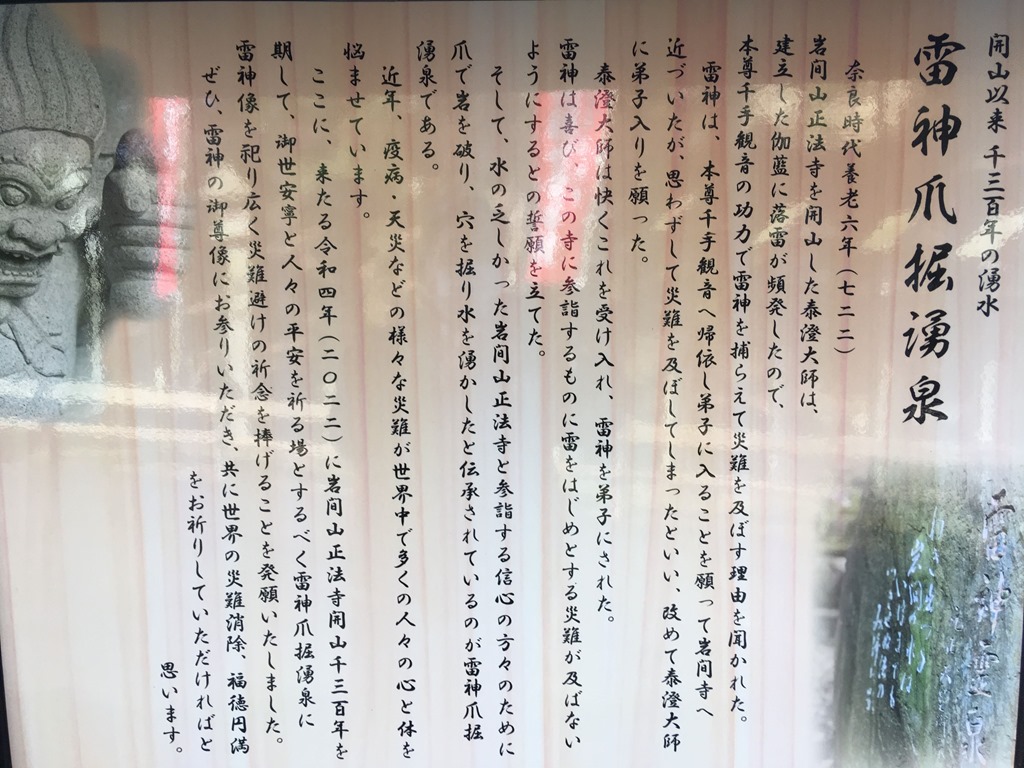 開山以来 千三百年の湧水
雷神爪掘湧泉
奈良時代養老六年（七二二）
岩間山正法寺を開山した泰澄大師は、
建立した伽藍に落雷が頻発したので、
本尊千手観音の功力で雷神を捕らえて災難を及ぼす理由を聞かれた。
雷神は、本尊千手観音へ帰依し弟子に入ることを願って岩間寺へ
近づいたが、思わずして災難を及ぼしてしまったといい、改めて泰澄大師
に弟子入りを願った。
泰澄大師は快くこれを受け入れ、雷神を弟子にされた。
雷神は喜び、この寺に参詣するものに雷をはじめとする災難が及ばない
ようにするとの誓願を立てた。
そして、水の乏しかった岩間山正法寺と参詣する信心の方々のために
爪で岩を破り、穴を掘り水を湧かしたと伝承されているのが雷神爪掘
湧泉である。
近年、疫病・天災などの様々な災難が世界中で多くの人々の心と体を
悩ませています。
ここに、来たる令和四年（二〇二二）に岩間山正法寺開山千三百年を
期して、御世安寧と人々の平安を祈る場とするべく雷神爪掘湧泉に
雷神像を祀り広く災難避けの祈念を捧げることを発願いたしました。
ぜひ、雷神の御尊像にお参りいただき、共に世界の災難消除、福徳円満
をお祈りしていただければと
思います。